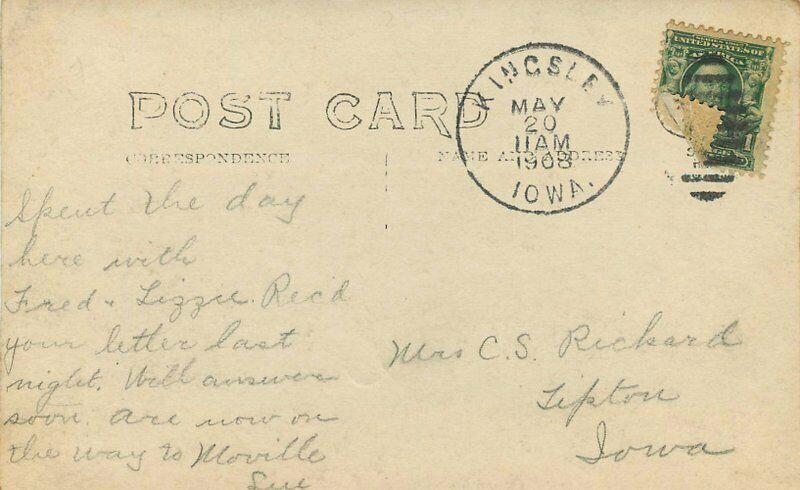 POST CARD
CORRESPONDENCE
NAME AND ADDRESS
KINGSLEY
MAY
20
11AM
1908
IOWA.
UNITED STATES OF
AMERICA
1
Spent the day
here with
Fred & Lizzie. Rec'd
your letter last
night. Will answer
soon. are now on
the way to Moville
Sue
Mrs C. S. Rickard
Tipton
Iowa